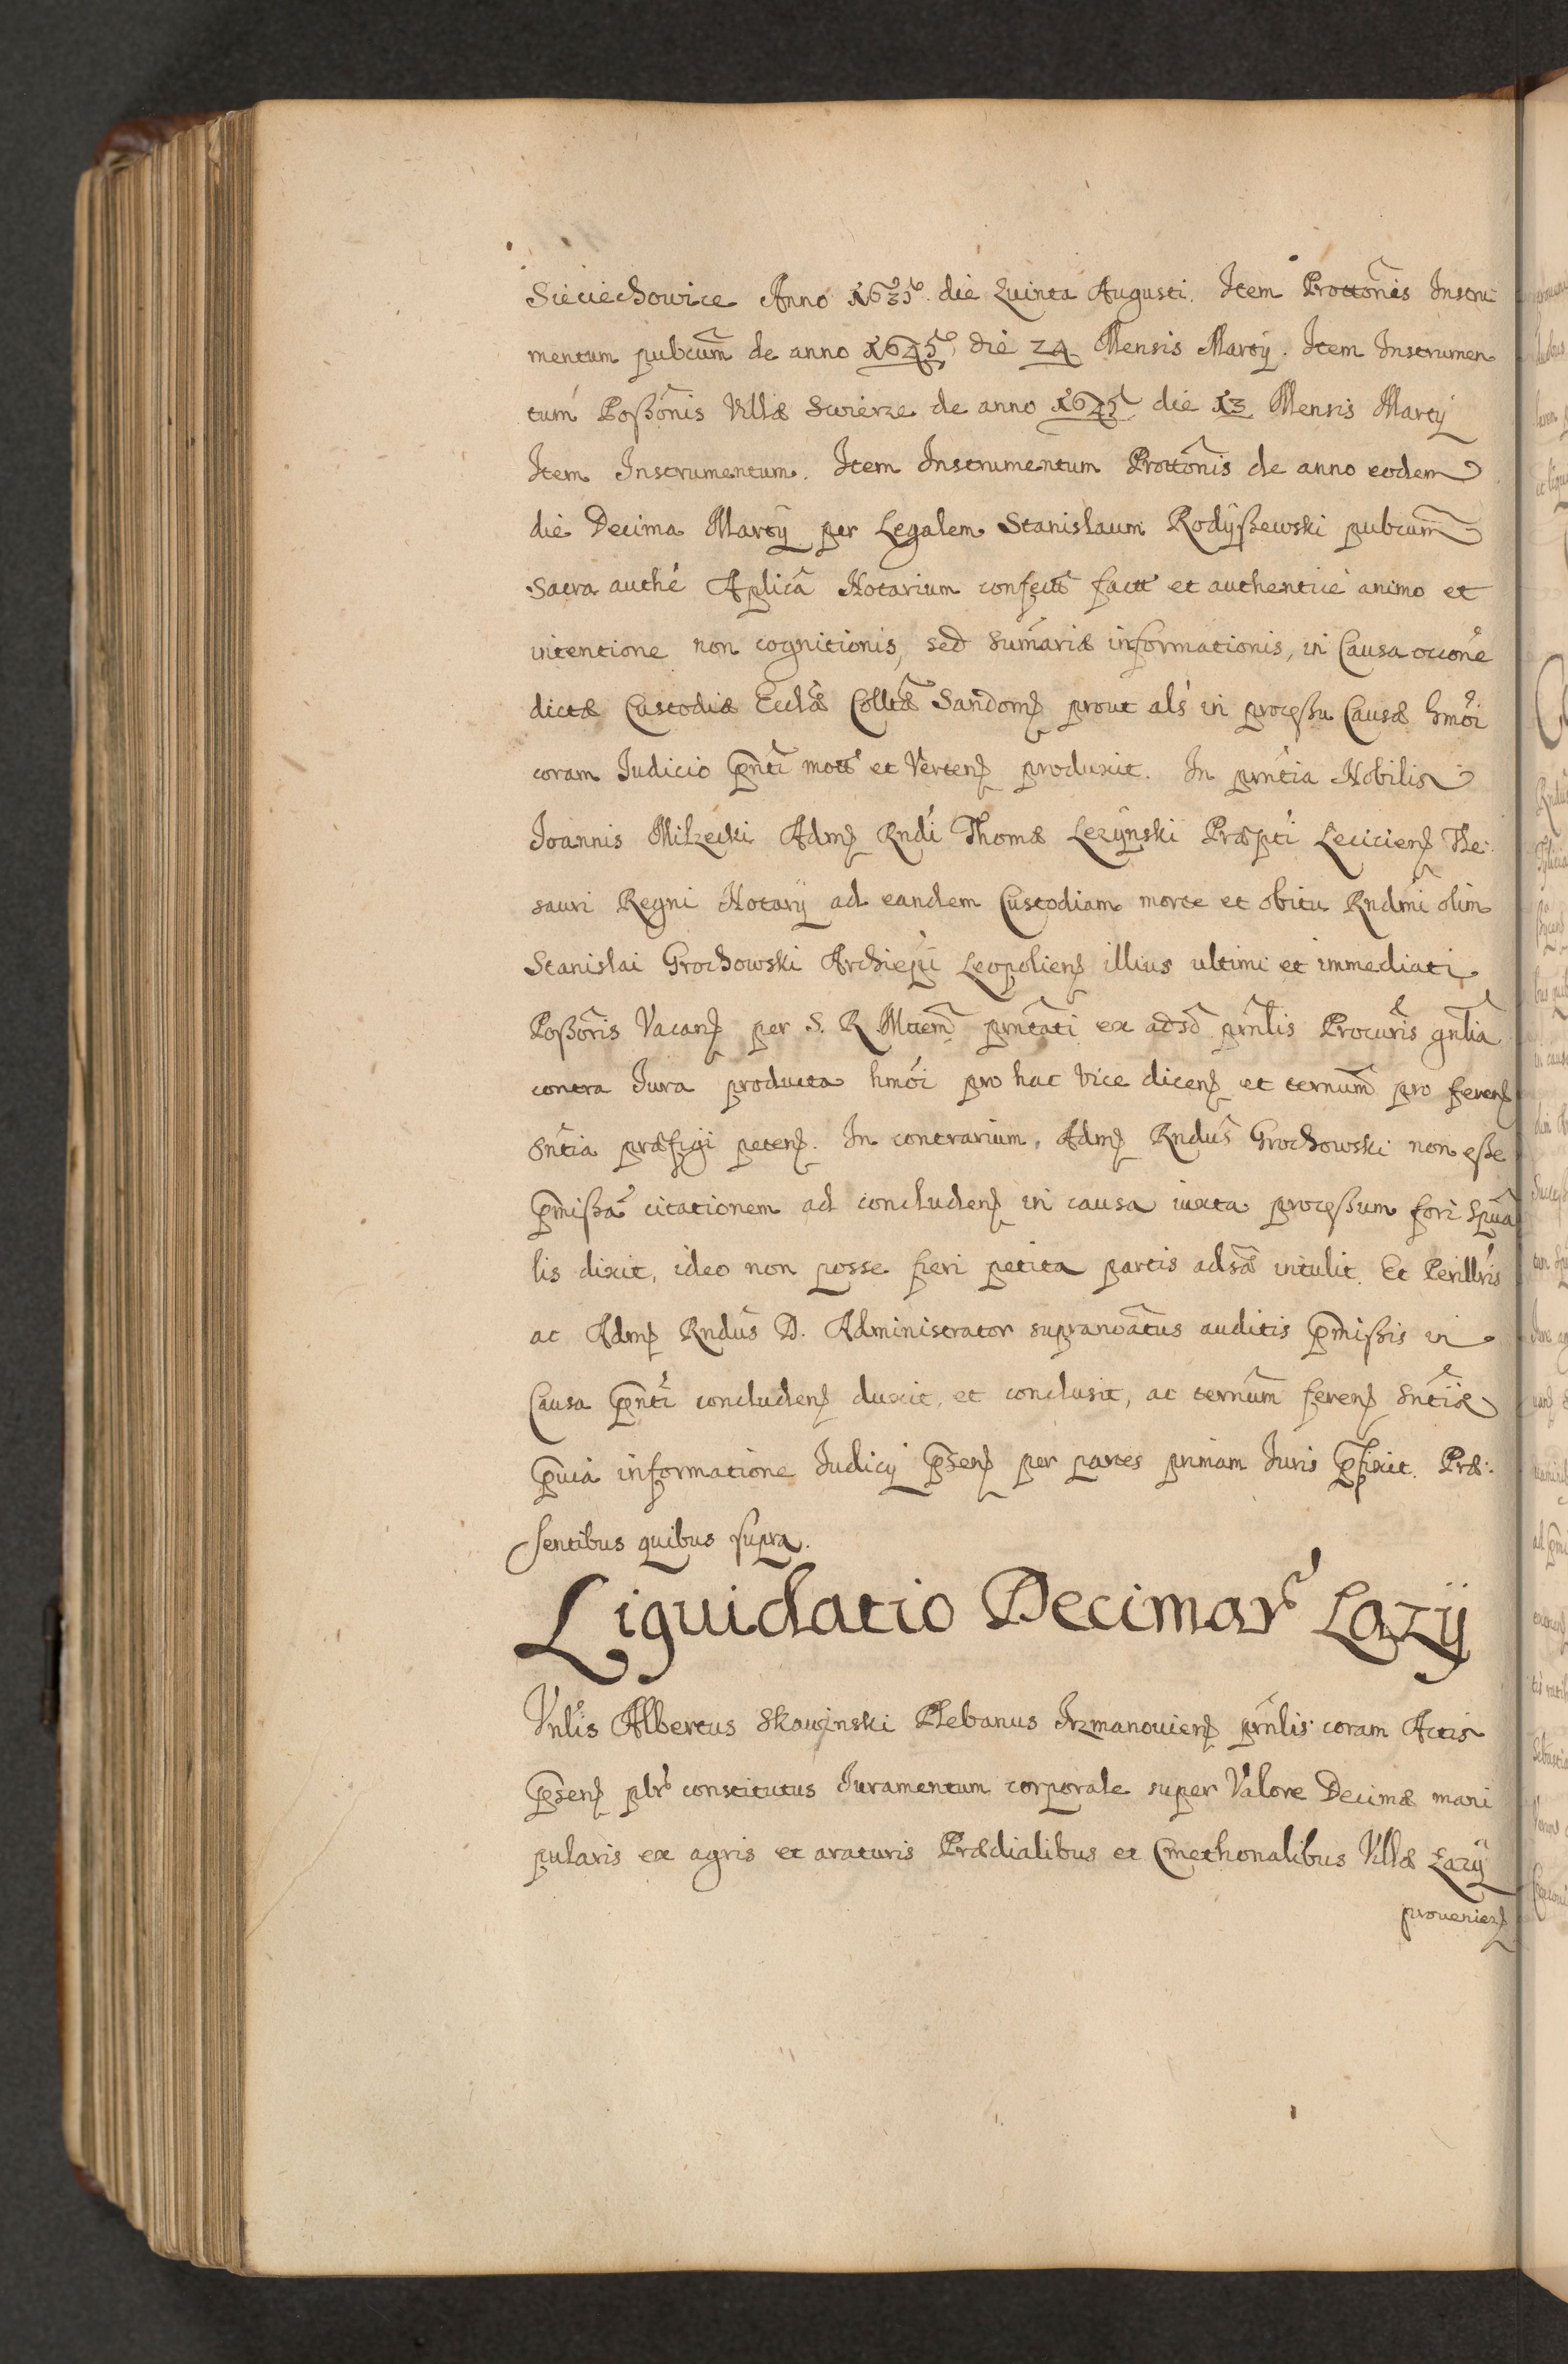 Sieciechowice Anno 1635to die Quinta Augusti. Item Prottonis Instru
mentum pubcum de anno 1645to die 24 Mensis Martÿ. Item Instrumen
tum Poßonis Villæ Swierze de anno 1645 die 13 Mensis Martÿ
Item Instrumentum. Item Instrumentum Prottonis de anno eodem
die Decima Martÿ per Legalem Stanislaum Rodÿszewski pubcum
Sacra authe Aplica Notarium confect fact et authentice animo et
intentione non cognitionis, sed sumariæ informationis, in Causa occone
dictæ Custodiæ Ecclæ Colltæ Sandom prout als in proceßu Causæ hmoi
coram Iudicio pnti mott et Verten produxit. In prntia Nobilis
Joannis Milzecki Adm Rndi Thomæ Lezÿnski Præpti Lecicien The:
sauri Regni Notarÿ ad eandem Custodiam morte et obitu Rndmi olim
Stanislai Grochowski Archiepi Leopolien illius ultimi et immediati
Poßoris Vacan per S. R Mttem prntati ex adso prnlis Procuris gnlia
contra Iura producta hmoi pro hac vice dicen et ternum pro feren
Sntia præfigi peten. In contrarium, Adm Rndus Grochowski non eße
pmißa citationem ad concluden in causa iuxta proceßum fori Spua
lis dixit, ideo non posse fieri petita partis adsæ intulit. Et Perillris
ac Adm Rndus D. Administrator supranoatus auditis pmißis in
Causa pnti concluden duxit, et conclusit, ac ternum feren Sntiæ
pvia informatione Iudicÿ psen per partes primam Iuris pfixit. Præ:
sentibus quibus supra.
Liquidatio Decimar Łazÿ
Vnlis Albertus Skowinski Plebanus Irzmanovien prnlis coram Actis
psen plr constitutus Iuramentum corporale super Valore Decimæ mani
pularis ex agris et araturis Prædialibus et Cmethonalibus Villæ Łazÿ
provenien